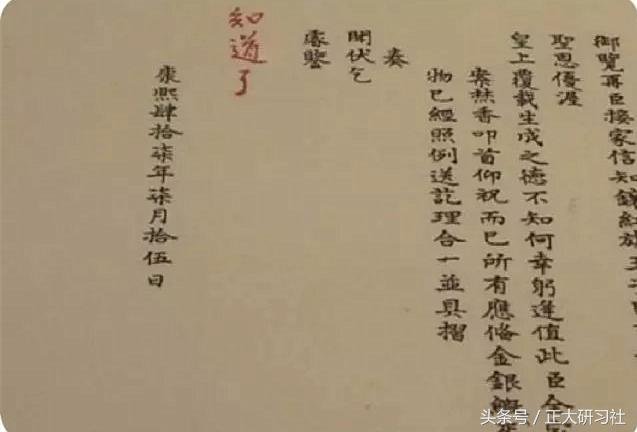 御覽再臣接家信知鑲紅旗王子已
聖恩優渥
皇上覆載生成之德不知何幸躬逢值此臣全家
案焚香叩首仰祝而已所有應俻金銀
物已經照例送訖理合一並具摺
奏
聞伏乞
睿鑒
知道了
康熙肆拾柒年柒月拾伍日
头条号 / 正大研习社